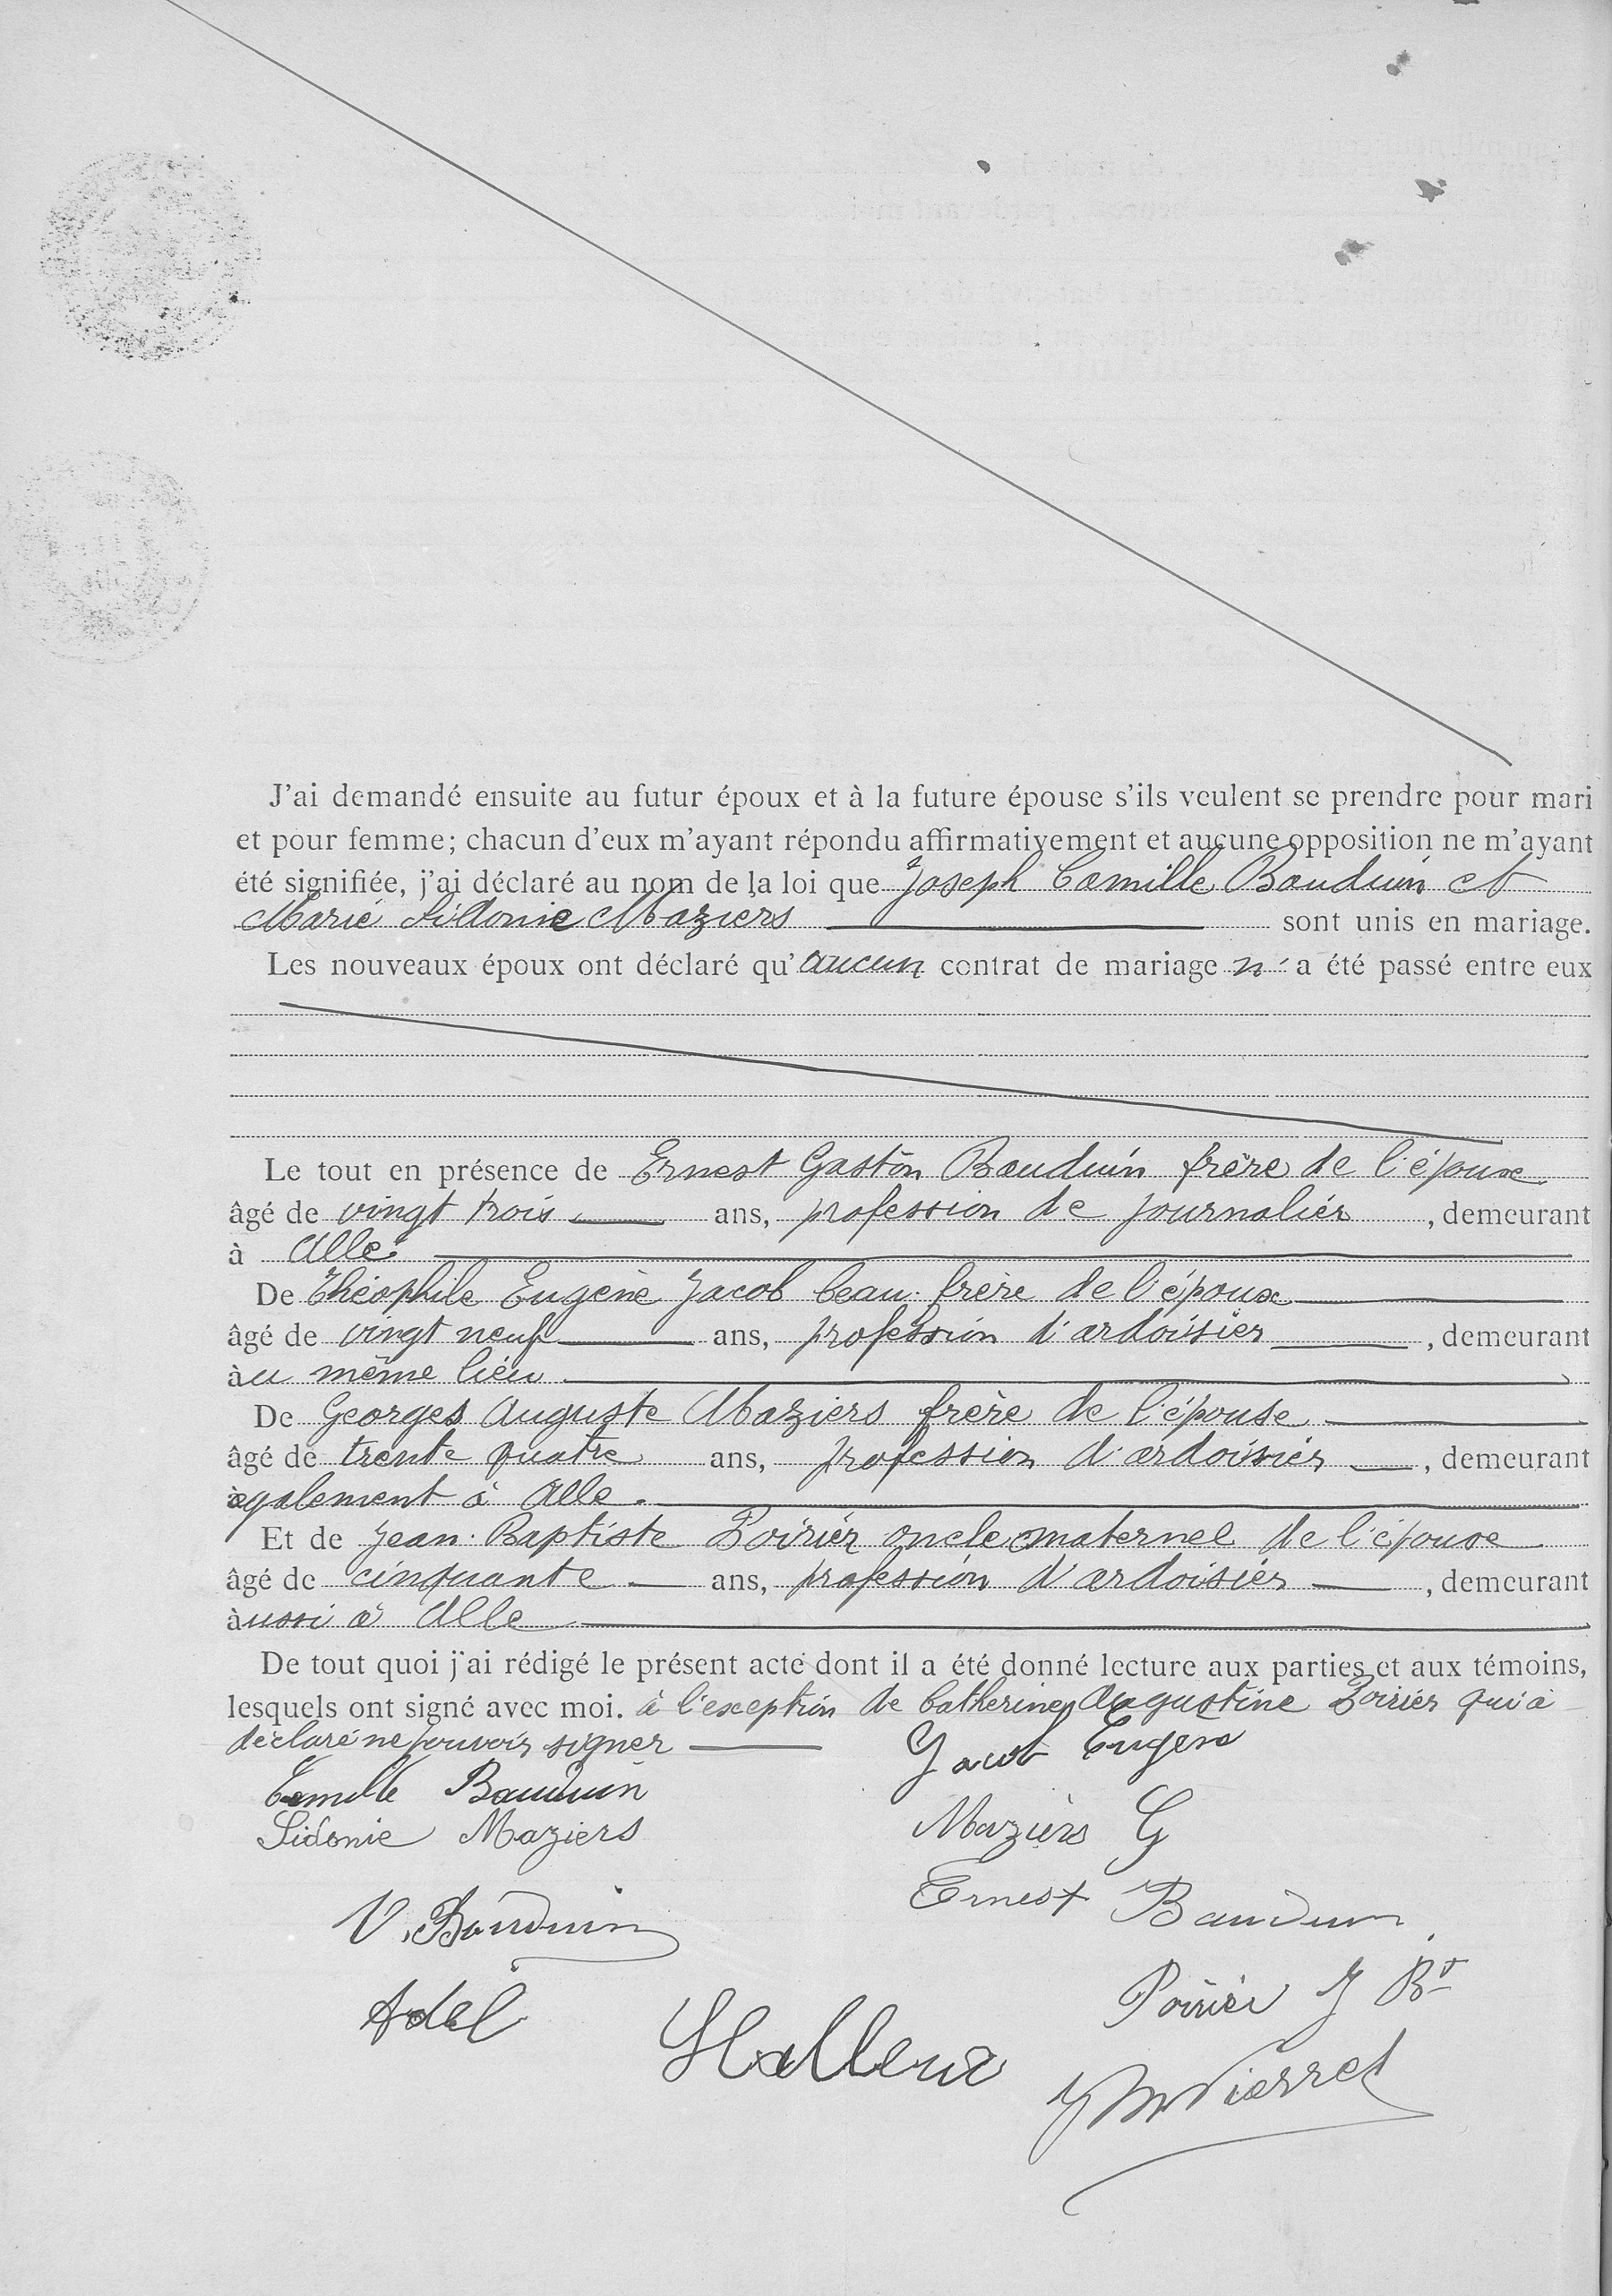 J'ai demandé ensuite au futur époux et à la future épouse s'ils veulent se prendre pour mari
et pour femme; chacun d'eux m'ayant répondu affirmativement et aucune opposition ne m'ayant
été signifiée, j'ai déclaré au nom de la loi que Joseph Camille Bauduin et
Marie Sidonie Maziers sont unis en mariage.
Les nouveaux époux ont déclaré qu'aucun contrat de mariage n'a été passé entre eux
Le tout en présence de Ernest Gaston Bauduin frère de l'époux
âgé de vingt trois ans, profession de journalier, demeurant
à Alle
De Théophile Eugène Jacob beau-frère de l'époux
âgé de vingt neuf ans, profession d'ardoisier, demeurant
àu même lieu
De Georges Auguste Maziers frère de l'épouse
âgé de trente quatre ans, profession d'ardoisier, demeurant
également à Alle.
Et de Jean-Baptiste Poirier oncle maternel de l'épouse
âgé de cinquante ans, profession d'ardoisier, demeurant
àussi à Alle
De tout quoi j'ai rédigé le présent acte dont il a été donné lecture aux parties et aux témoins,
lesquels ont signé avec moi. à l'exception de Catherine Augustine Poirier qui a
déclaré ne pouvoir signer
Jacob Eugène
Camille Bauduin
Sidonie Maziers
Maziers G
Ernest Bauduin
V. Bauduin
Poirier J Bt
Adel
Halleux
Pierret